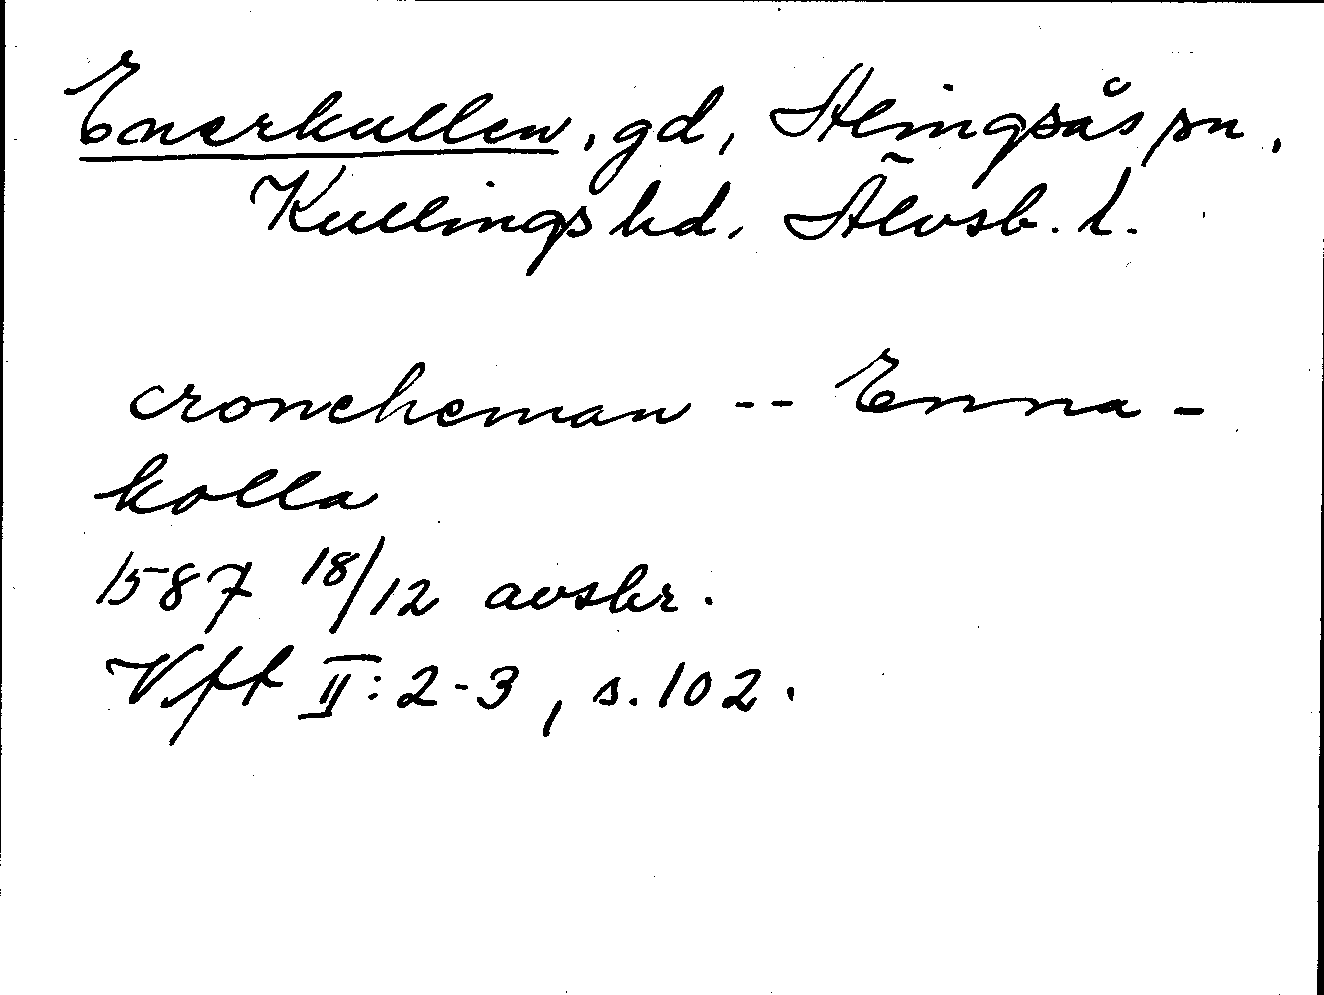 Enerkullen, gd, Alingsås sn,
Kullings hd, Älvsb. l.
croneheman -- Enna-
kolla
1587 18/12 avskr.
Vfft II:2-3, s.102.